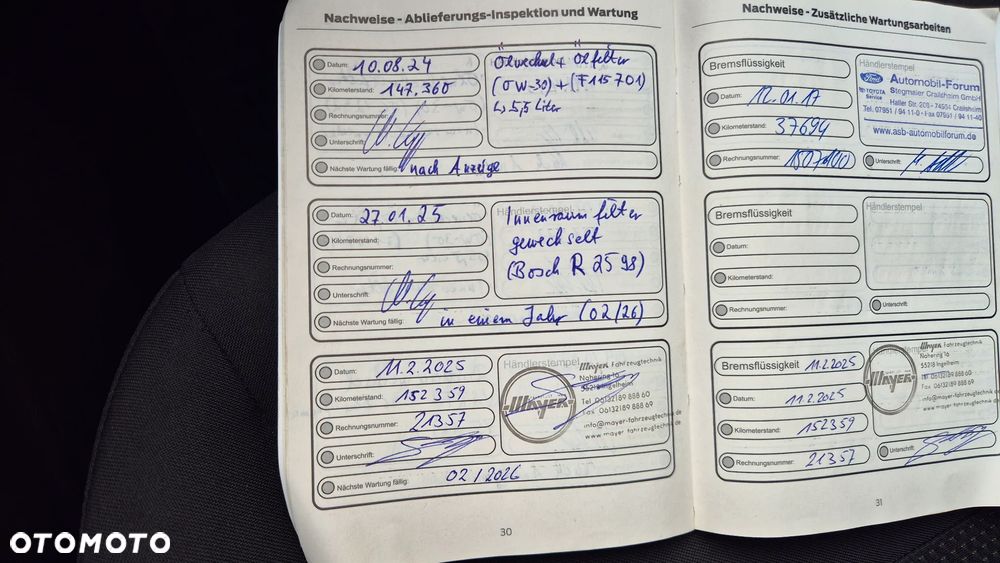 Nachweise - Ablieferungs-Inspektion und Wartung
Datum: 10.08.24
Kilometerstand: 147.360
Rechnungsnummer:
Unterschrift:
Nächste Wartung fällig: nach Anzeige
Ölwechsel + Ölfilter
(0W-30) + (F115701)
↳ 5,5 Liter
Datum: 27.01.25
Kilometerstand:
Rechnungsnummer:
Unterschrift:
Nächste Wartung fällig: in einem Jahr (02/26)
Händlerstempel
Innenraumfilter
gewechselt
(Bosch R 2598)
Datum: 11.2.2025
Kilometerstand: 152359
Rechnungsnummer: 21357
Unterschrift:
Nächste Wartung fällig: 02/2026
Händlerstempel
MAYER
Mayer Fahrzeugtechnik
Nahering 1a
55218 Ingelheim
Tel. 06132 189 888 60
Fax 06132 189 888 69
info@mayer-fahrzeugtechnik.de
www.mayer-fahrzeugtechnik.de
30
Nachweise - Zusätzliche Wartungsarbeiten
Bremsflüssigkeit
Datum: 12.01.17
Kilometerstand: 37694
Rechnungsnummer:
Händlerstempel
Ford
TOYOTA
Service
Automobil-Forum
Stegmaier Crailsheim GmbH
Haller Str. 208 - 74564 Crailsheim
Tel. 07951 / 94 11-0 · Fax 07951 / 94 11-40
www.asb-automobilforum.de
Unterschrift:
Bremsflüssigkeit
Datum:
Kilometerstand:
Rechnungsnummer:
Händlerstempel
Unterschrift:
Bremsflüssigkeit 11.2.2025
Datum: 11.2.2025
Kilometerstand: 152359
Rechnungsnummer: 21357
Händlerstempel
MAYER
Mayer Fahrzeugtechnik
Nahering 1a
55218 Ingelheim
Tel. 06132 189 888 60
Fax 06132 189 888 69
info@mayer-fahrzeugtechnik.de
www.mayer-fahrzeugtechnik.de
Unterschrift:
31
OTOMOTO